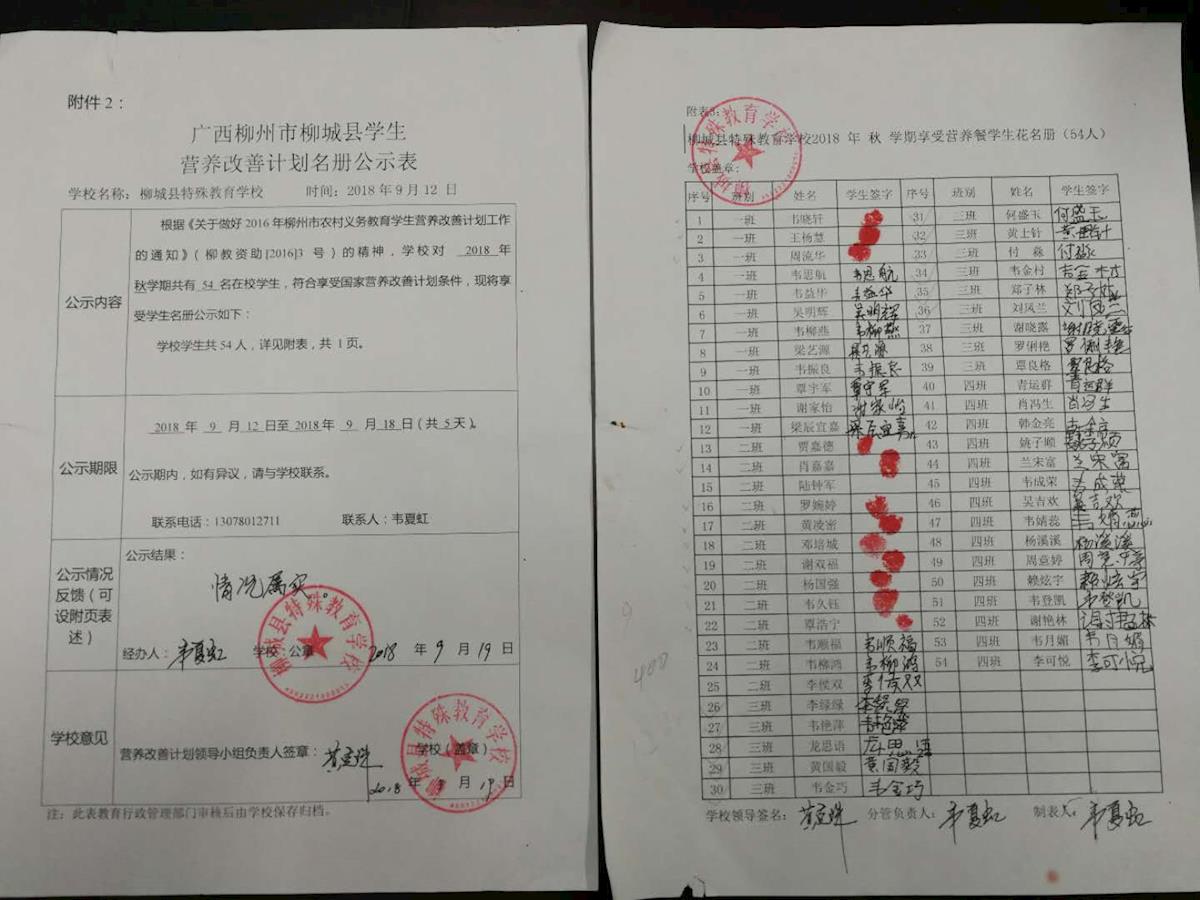 附件2：
广西柳州市柳城县学生
营养改善计划名册公示表
学校名称：柳城县特殊教育学校 时间：2018年9月12日
公示内容
根据《关于做好2016年柳州市农村义务教育学生营养改善计划工作
的通知》（柳教资助[2016]3 号）的精神，学校对 2018 年
秋学期共有 54 名在校学生，符合享受国家营养改善计划条件，现将享
受学生名册公示如下：
学校学生共54人，详见附表，共 1页。
公示期限
2018 年 9 月 12日至 2018年 9 月 18日（共 5天）。
公示期内，如有异议，请与学校联系。
联系电话：13078012711 联系人：韦夏虹
公示情况反馈（可设附页表述）
公示结果：
情况属实。
经办人：韦夏虹 学校：公章 2018 年 9 月 19 日
柳城县特殊教育学校
学校意见
营养改善计划领导小组负责人签章： 学校（盖章）
2018 年 9 月 19 日
柳城县特殊教育学校
注：此表教育行政管理部门审核后由学校保存归档。
附表3：
柳城县特殊教育学校2018 年 秋 学期享受营养餐学生花名册（54人）
学校盖章：
柳城县特殊教育学校
序号 班别 姓名 学生签字 序号 班别 姓名 学生签字
1 一班 韦晓轩 31 三班 何盛玉 何盛玉
2 一班 王杨慧 32 三班 黄土针
3 一班 周流华 33 三班 付淼 付淼
4 一班 韦思航 韦思航 34 三班 韦金村 韦金村
5 一班 韦益华 韦益华 35 三班 郑子林 郑子林
6 一班 吴明辉 吴明辉 36 三班 刘凤兰 刘凤兰
7 一班 韦柳燕 韦柳燕 37 三班 谢晓露 谢晓露
8 一班 梁艺源 38 三班 罗俐艳 罗俐艳
9 一班 韦振良 韦振良 39 三班 覃良格 覃良格
10 一班 覃宇军 覃宇军 40 四班 青运群 青运群
11 一班 谢家怡 谢家怡 41 四班 肖冯生 肖冯生
12 一班 梁辰宜嘉 梁辰宜嘉 42 四班 韩金亮
13 二班 贾嘉德 43 四班 姚子顺 姚子顺
14 二班 肖嘉嘉 44 四班 兰宋富 兰宋富
15 二班 陆钟军 45 四班 韦成荣 韦成荣
16 二班 罗婉婷 46 四班 吴吉欢 吴吉欢
17 二班 黄凌密 47 四班 韦婧蕊 韦婧蕊
18 二班 邓培城 48 四班 杨溪溪 杨溪溪
19 二班 谢双福 49 四班 周莞婷
20 二班 杨国强 50 四班 赖炫宇 赖炫宇
21 二班 韦久钰 51 四班 韦登凯 韦登凯
22 二班 覃浩宁 52 四班 谢艳林
23 二班 韦顺福 韦顺福 53 四班 韦月媚 韦月媚
24 二班 韦柳鸿 韦柳鸿 54 四班 李可悦 李可悦
25 二班 李俟双 李俟双
26 三班 李绿绿
27 三班 韦艳萍 韦艳萍
28 三班 龙思语 龙思语
29 三班 黄国毅 黄国毅
30 三班 韦金巧 韦金巧
学校领导签名： 分管负责人：韦夏虹 制表人：韦夏虹